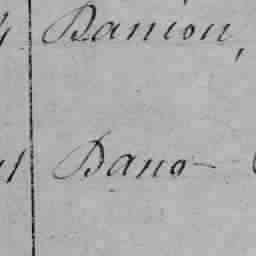 Banion,
Bano-